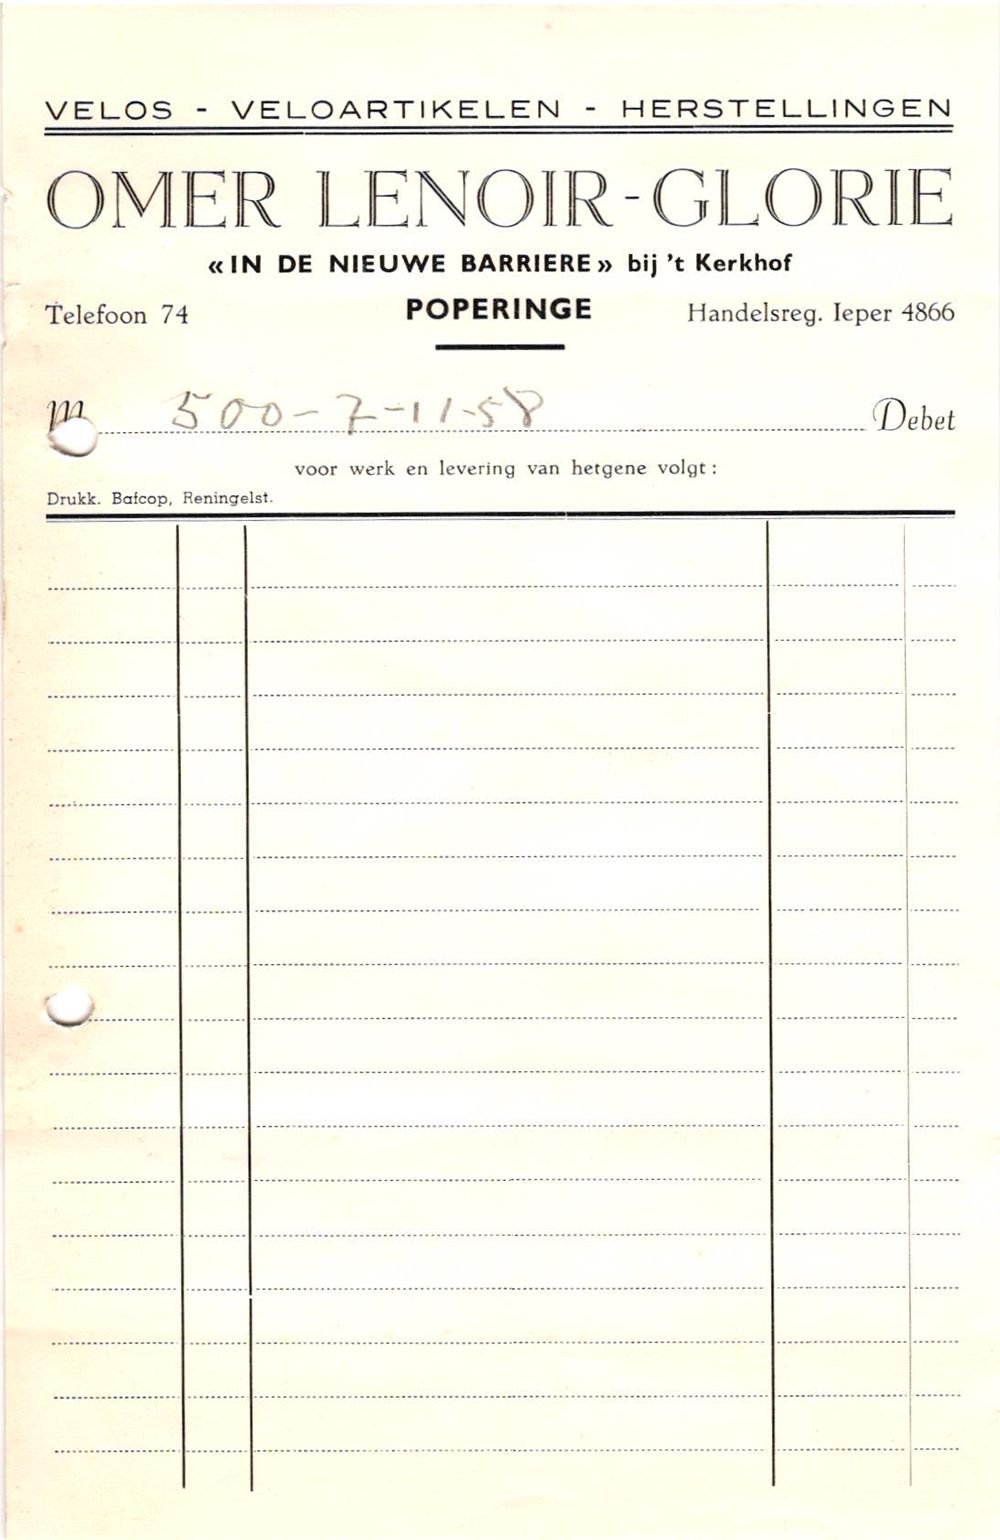 VELOS - VELOARTIKELEN - HERSTELLINGEN
OMER LENOIR-GLORIE
«IN DE NIEUWE BARRIERE» bij 't Kerkhof
Telefoon 74 POPERINGE Handelsreg. Ieper 4866
M 500-7-11-58 Debet
voor werk en levering van hetgene volgt:
Drukk. Bafcop, Reningelst.